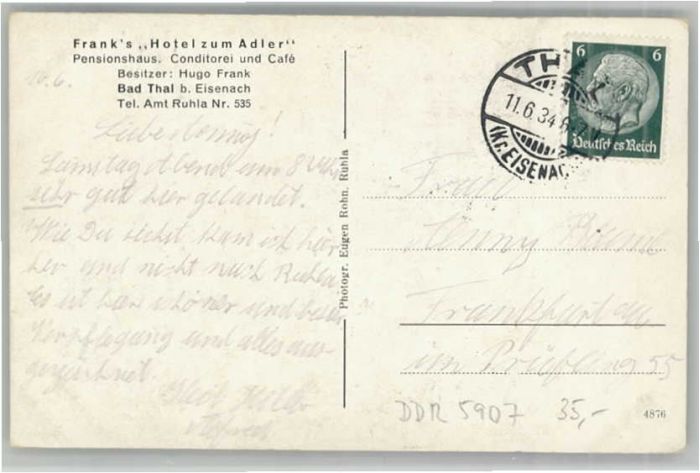 Frank's „Hotel zum Adler"
Pensionshaus. Conditorei und Café
Besitzer: Hugo Frank
Bad Thal b. Eisenach
Tel. Amt Ruhla Nr. 535
10.6.
Samstag Abend um 8 Uhr
sehr gut hier gelandet.
Wie Du siehst kam ich hier
her und nicht nach Ruhla
es ist hier schöner und
Verpflegung und alles aus-
gezeichnet.
Photogr. Eugen Rohn, Ruhla
6 6
Deutsches Reich
THAL
11.6.34
(KR. EISENACH
Frau
Frankfurt a/M
im Prüfling 55
DDR 5907 35,-
4876